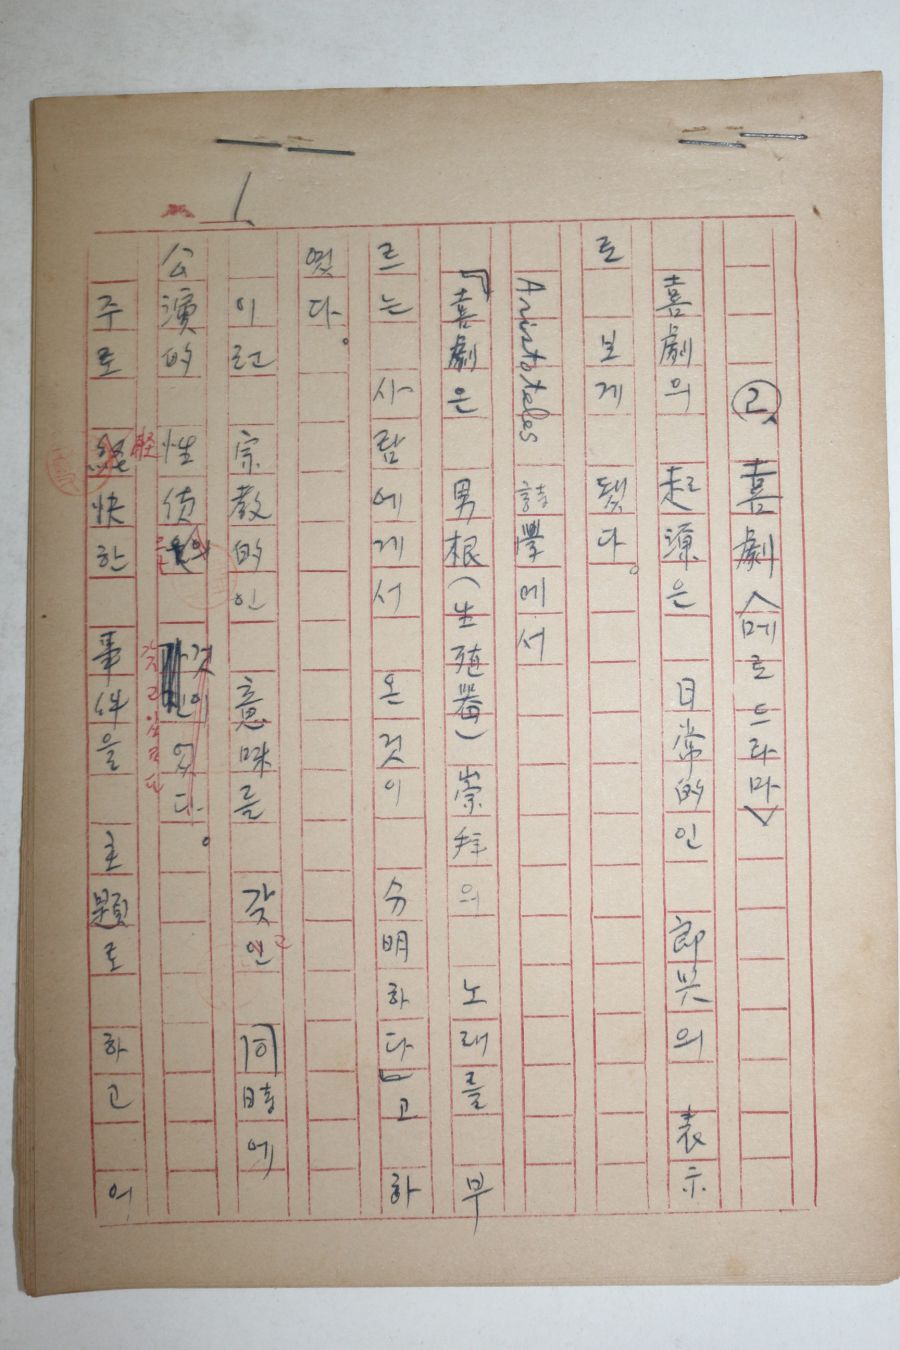 1
②、喜劇<메로드라마>
喜劇의 起源은 日常的인 即興의 表示
로 보게 됐다。
Aristoteles 詩學에서
『喜劇은 男根(生殖器)崇拜의 노래를 부
르는 사람에게서 온것이 分明하다』고 하
였다。
이런 宗教的인 意味를 갖인 同時에
公演的 性質 것이 있다。
주로 輕快한 事件을 主題로 하고 어
갖고 있
고